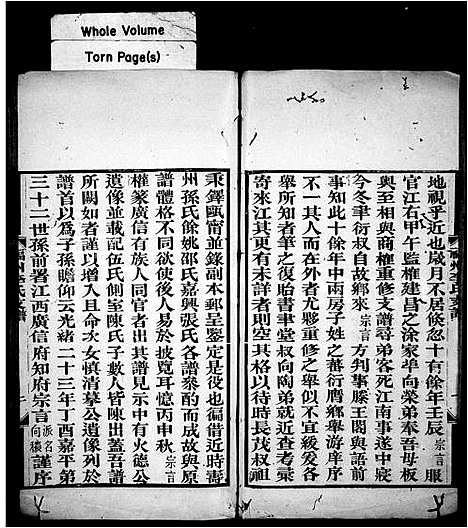 Whole Volume
Torn Page(s)
地視乎近也歲月不居倐忽十有餘年壬辰宗言服
官江右甲午監榷建昌之涂家阜向榮弟奉吾母板
輿至相與商榷重修支譜尋弟客死江南事遂中寢
今冬聿衍叔自故鄉來宗言方判事滕王閣與語前
事知此十餘年中兩房子姓之蕃衍膺鄉舉游庠序
不一其人而在外者尤夥重修之舉似不宜緩爰各
舉所知者貽書事堂叔向陶弟就近續查於是彚
寄來江其更有未詳者則空其格以待時長茂叔祖
秉鐸甌甯並錄副本郵呈鑒定是役也徧借近時壽
州孫氏餘姚邵氏嘉興張氏各譜參酌而成故與原
譜體格不同欲使後人易於披覽耳憶丙申秋宗言
權篆廣信有族人同官者出其譜見示中有火德公
遺像並載配伍氏側室陳氏子數人皆陳出蓋吾譜
所闕如者謹以增入且命次女慎清摹公遺像列於
譜首以爲子孫瞻仰云光緒二十三年丁酉嘉平弟
三十二世孫前署江西廣信府知府宗言派名向樓謹序
福州李氏支譜